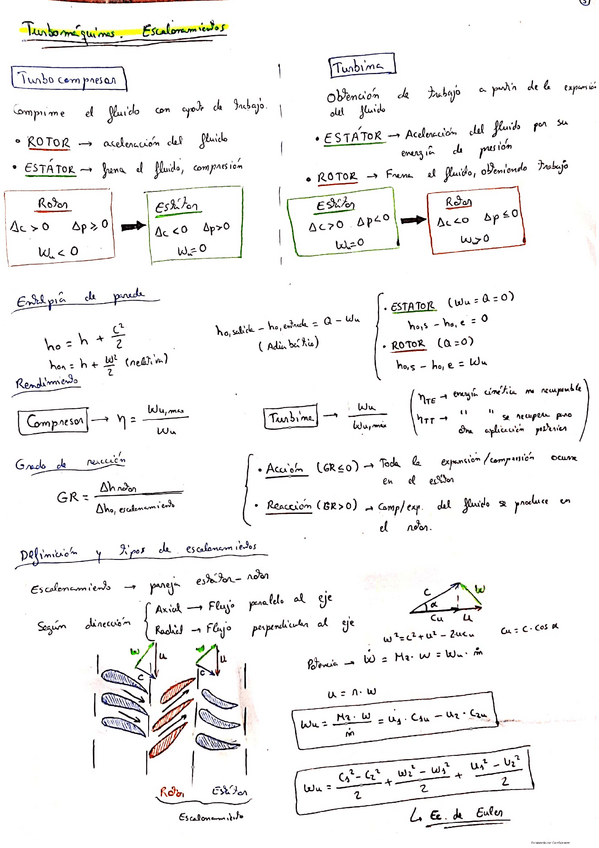 Turbomáquinas. Escalonamientos
Turbocompresor
Comprime el fluido con aport de trabajo.
• ROTOR → aceleración del fluido
• ESTÁTOR → frena el fluido, compresión
Rotor
Δc > 0 Δp ≥ 0
Wu < 0
Estátor
Δc < 0 Δp > 0
Wu = 0
Turbina
Obtención de trabajo a partir de la expansión
del fluido
• ESTÁTOR → Aceleración del fluido por su
energía de presión
• ROTOR → Frena el fluido, obteniendo trabajo
Estátor
Δc > 0 Δp < 0
Wu = 0
Rotor
Δc < 0 Δp ≤ 0
Wu > 0
Entalpía de parada
h0 = h + c²/2
h0R = h + w²/2 (relativa)
h0,salida - h0,entrada = Q - Wu
(Adiabático)
• ESTATOR (Wu = Q = 0)
h0,s - h0,e = 0
• ROTOR (Q = 0)
h0,s - h0,e = Wu
Rendimiento
Compresor → η = Wu,max / Wu
Turbina → Wu / Wu,max
ηTE → energía cinética no recuperable
ηTT → " " se recupera para
otra aplicación posterior
Grado de reacción
GR = Δh rotor / Δh0, escalonamiento
• Acción (GR ≤ 0) → Toda la expansión/compresión ocurre
en el estátor
• Reacción (GR > 0) → Comp/exp. del fluido se produce en
el rotor.
Definición y tipos de escalonamientos
Escalonamiento → pareja estátor - rotor
Según dirección
Axial → Flujo paralelo al eje
Radial → Flujo perpendicular al eje
c w
α
cu u
w² = c² + u² - 2ucu cu = c · cos α
Potencia → Ẇ = Mz · w = Wu · ṁ
u = r · w
Wu = Mz · w / ṁ = u1 · c1u - u2 · c2u
Wu = c1² - c2² / 2 + w2² - w1² / 2 + u1² - u2² / 2
↳ Ec. de Euler
w u
c
w u
c
Rotor Estátor
Escalonamiento